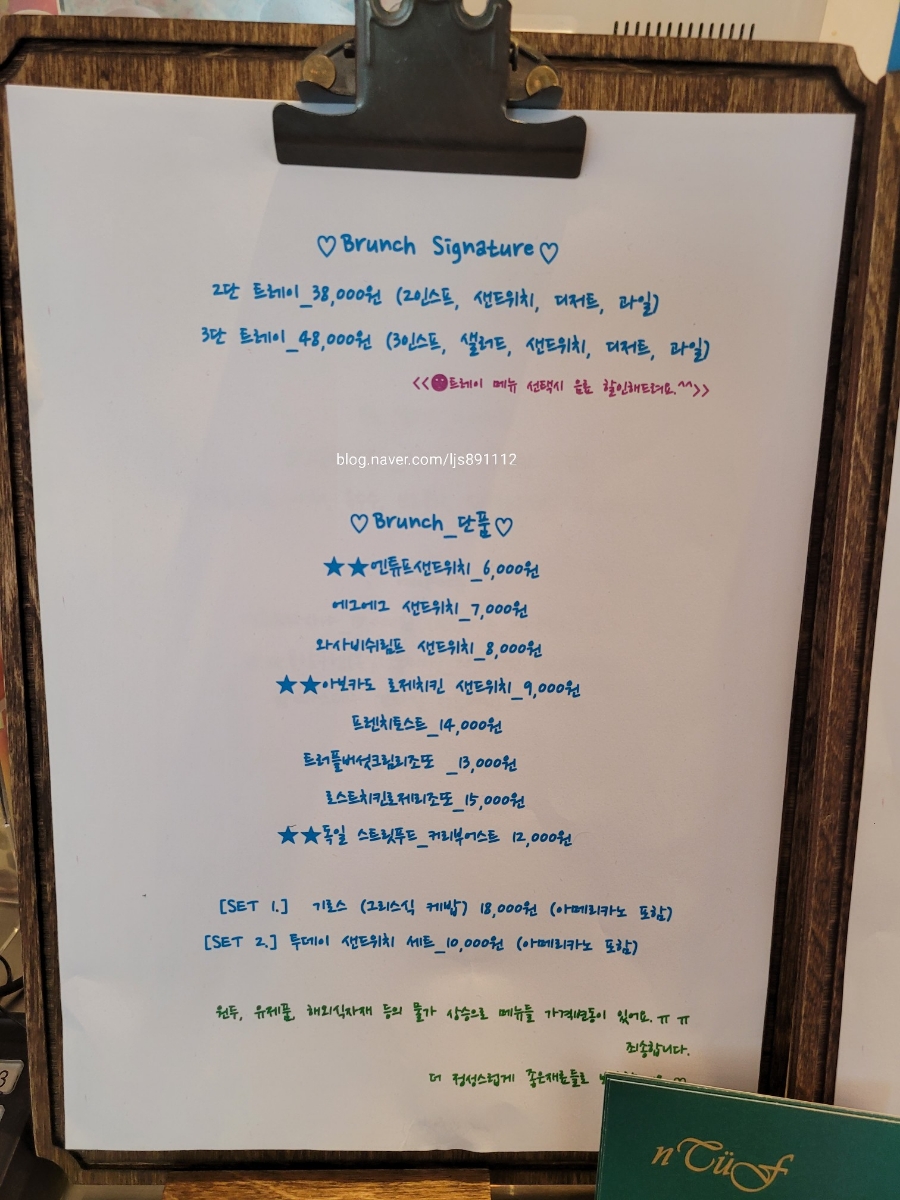 ♡Brunch Signature♡
2단 트레이_38,000원 (2인스프, 샌드위치, 디저트, 과일)
3단 트레이_48,000원 (3인스프, 샐러드, 샌드위치, 디저트, 과일)
<<트레이 메뉴 선택시 음료 할인해드려요.^^>>
blog.naver.com/ljs891112
♡Brunch_단품♡
★★엔튜프샌드위치_6,000원
에그에그 샌드위치_7,000원
와사비쉬림프 샌드위치_8,000원
★★아보카도 로제치킨 샌드위치_9,000원
프렌치토스트_14,000원
트러플버섯크림리조또 _13,000원
로스트치킨로제리조또_15,000원
★★독일 스트릿푸드_커리부어스트 12,000원
[SET 1.] 기로스 (그리스식 케밥) 18,000원 (아메리카노 포함)
[SET 2.] 투데이 샌드위치 세트_10,000원 (아메리카노 포함)
원두, 유제품, 해외식자재 등의 물가 상승으로 메뉴들 가격변동이 있어요.ㅠㅠ
죄송합니다.
더 정성스럽게 좋은재료들로
nTüF